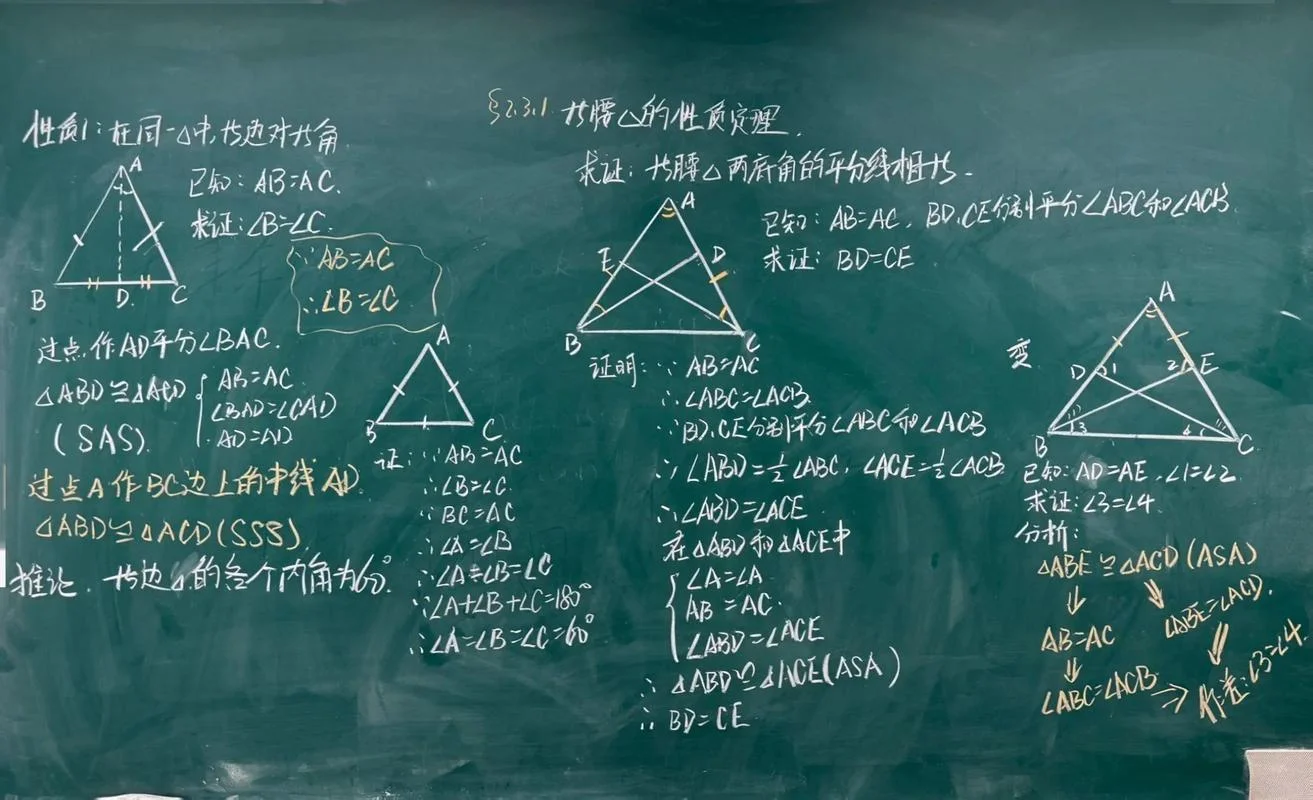 §2.3.1 ⺮腰△的性质定理.
性质1: 在同一△中, ⺮边对⺮角
A
B
D.
C
已知: AB=AC.
求证: ∠B=∠C.
∵AB=AC
∴∠B=∠C
过点.作AD平分∠BAC.
△ABD≌△ACD { AB=AC
∠BAD=∠CAD
AD=AD
(SAS).
过点A作BC边上的中线AD.
△ABD≌△ACD(SSS)
推论. ⺮边△的各个内角为60°.
A
B
C
证: ∵AB=AC
∴∠B=∠C.
∵BC=AC
∴∠A=∠B
∴∠A=∠B=∠C
∵∠A+∠B+∠C=180°
∴∠A=∠B=∠C=60°
求证: ⺮腰△两底角的平分线相⺮.
A
E
D
B
C
已知: AB=AC, BD.CE分别平分∠ABC和∠ACB.
求证: BD=CE
证明: ∵AB=AC
∴∠ABC=∠ACB.
∵BD.CE分别平分∠ABC和∠ACB
∴∠ABD=½∠ABC, ∠ACE=½∠ACB
∴∠ABD=∠ACE
在△ABD和△ACE中
{ ∠A=∠A
AB=AC.
∠ABD=∠ACE
∴△ABD≌△ACE(ASA)
∴BD=CE
变.
A
D
1
2
E
B
3
4
C
已知: AD=AE, ∠1=∠2
求证: ∠3=∠4.
分析:
△ABE≌△ACD(ASA)
⇓ ⇓
AB=AC
∠ABE=∠ACD.
⇓ ⇓
∠ABC=∠ACB ⇒ 作差:∠3=∠4.